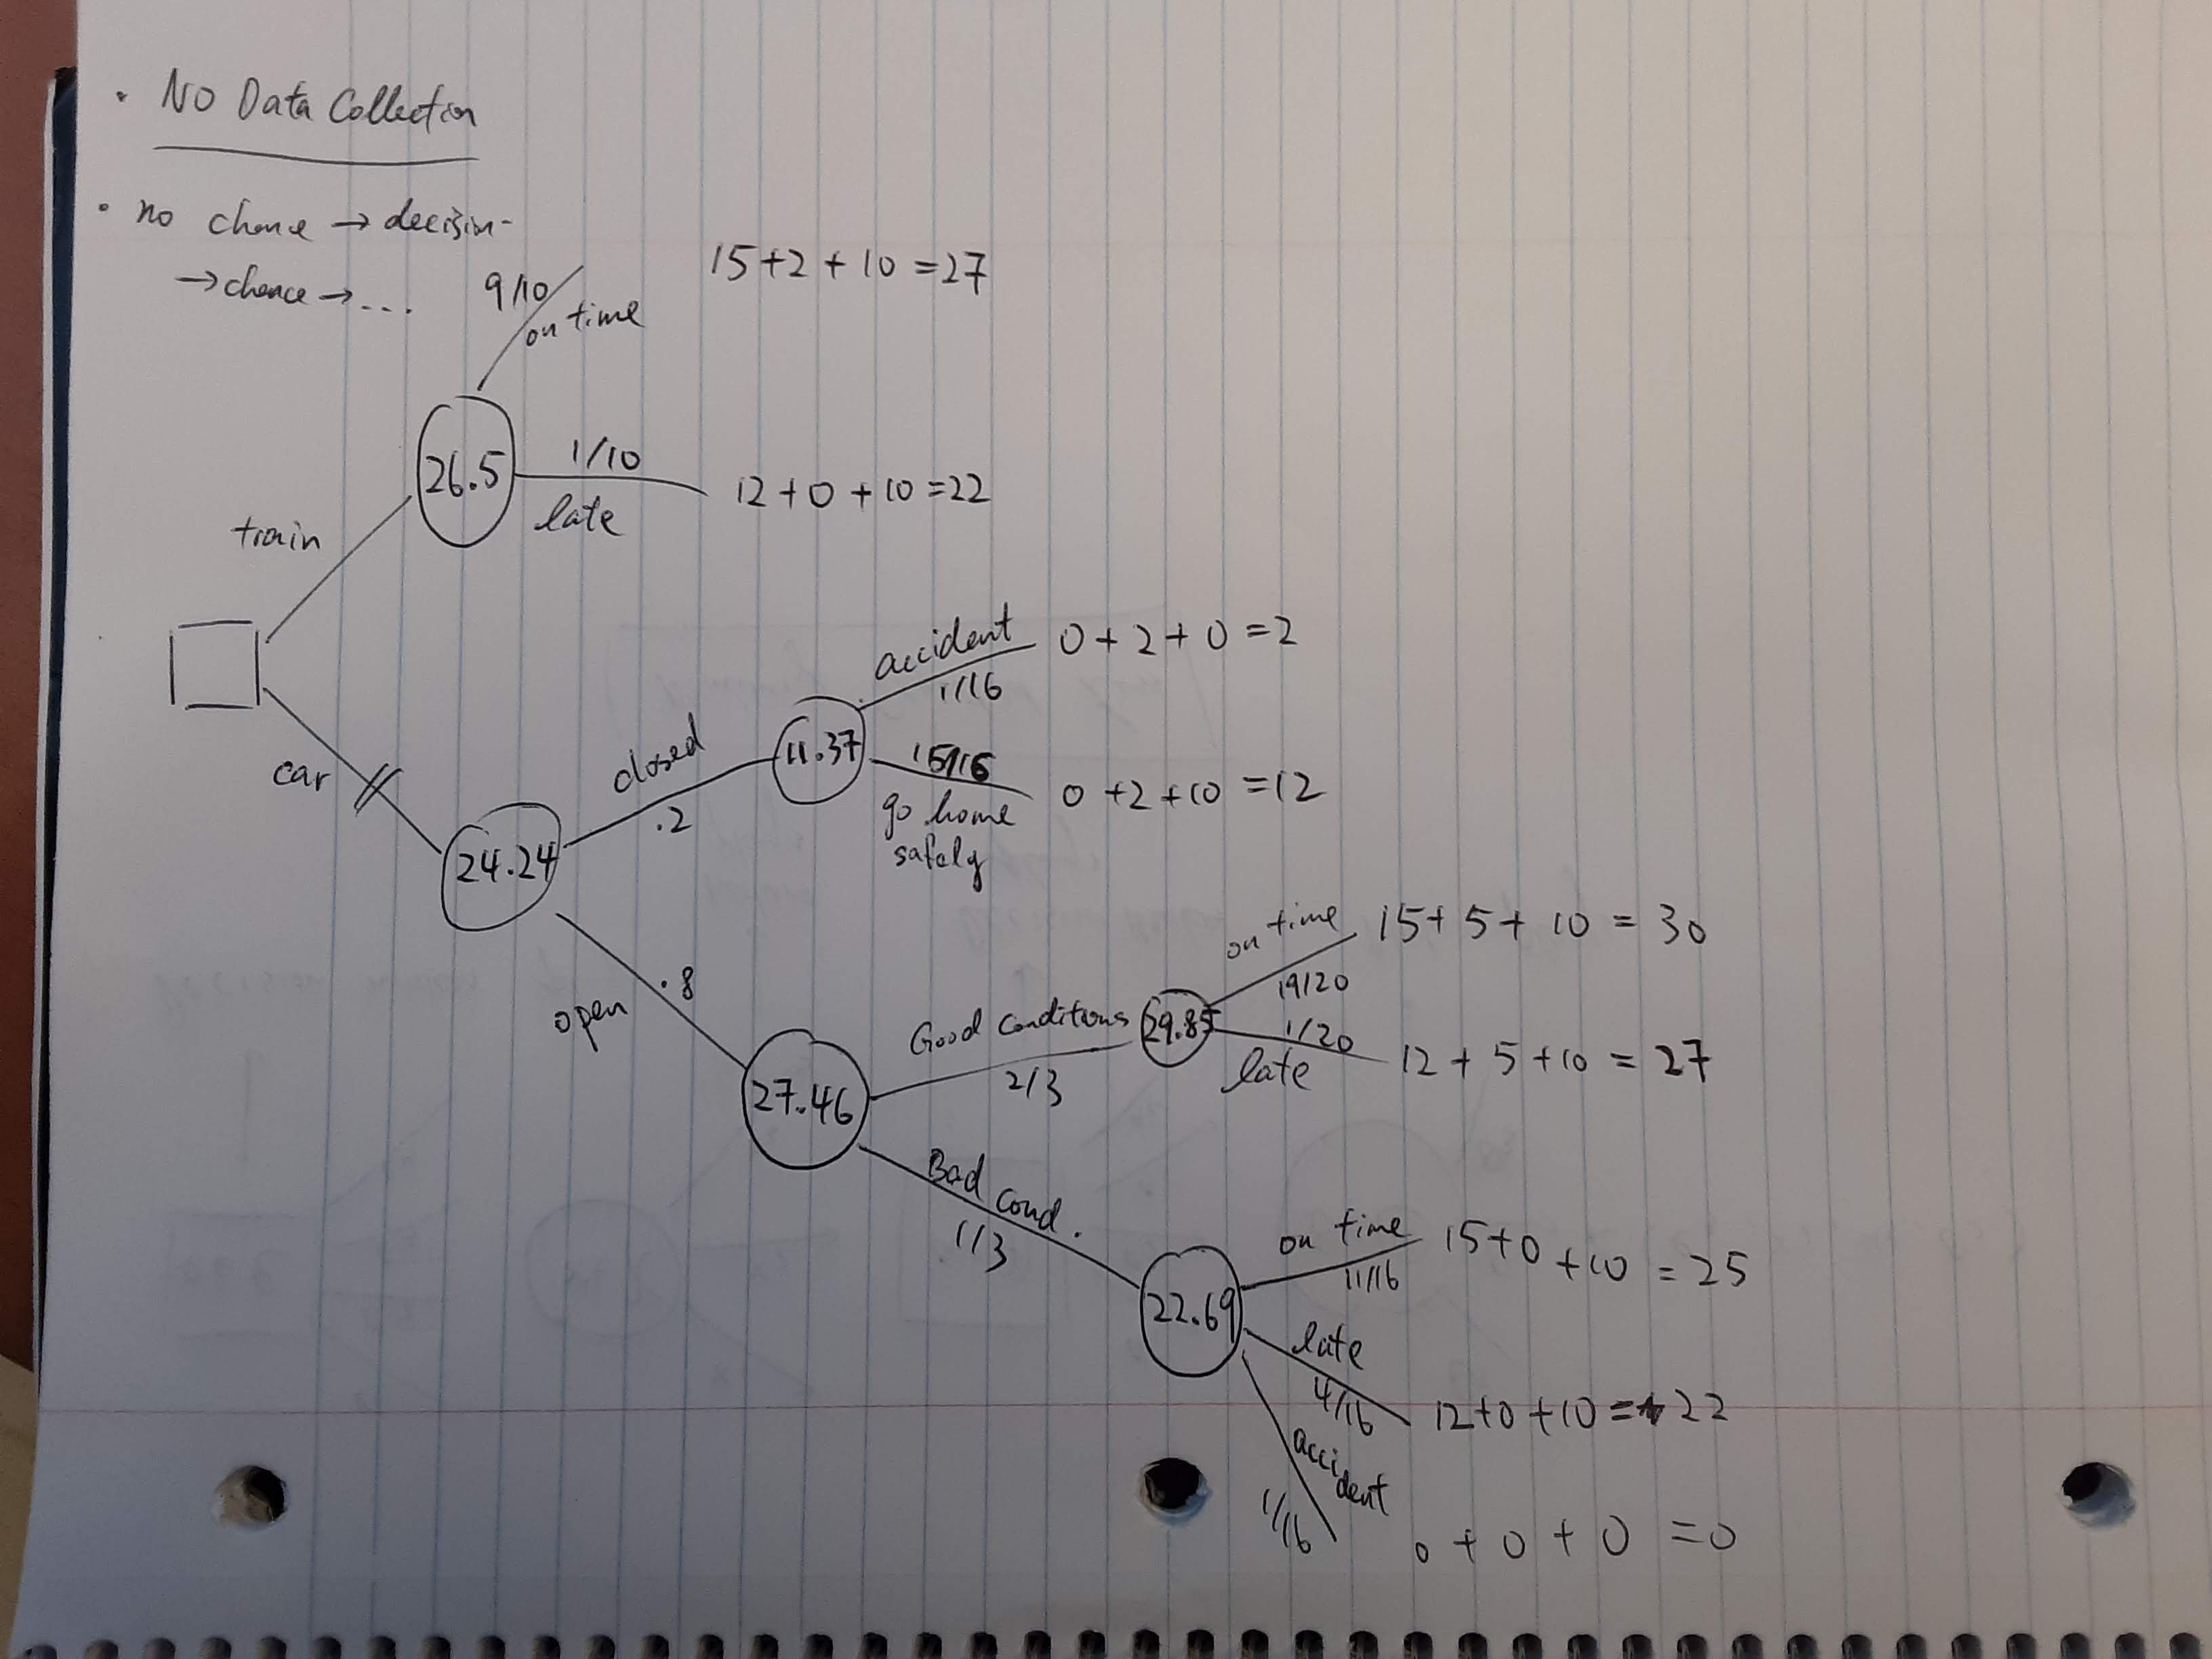 · No Data Collection
· no chance → decision-
→ chance → ...
9/10
on time
15 + 2 + 10 = 27
train
26.5
1/10
late
12 + 0 + 10 = 22
car
24.24
closed
.2
11.37
accident
1/16
0 + 2 + 0 = 2
15/16
go home
safely
0 + 2 + 10 = 12
open
.8
27.46
Good conditions
2/3
29.85
on time
19/20
15 + 5 + 10 = 30
1/20
late
12 + 5 + 10 = 27
Bad cond.
1/3
22.69
on time
11/16
15 + 0 + 10 = 25
late
4/16
12 + 0 + 10 = 22
accident
1/16
0 + 0 + 0 = 0